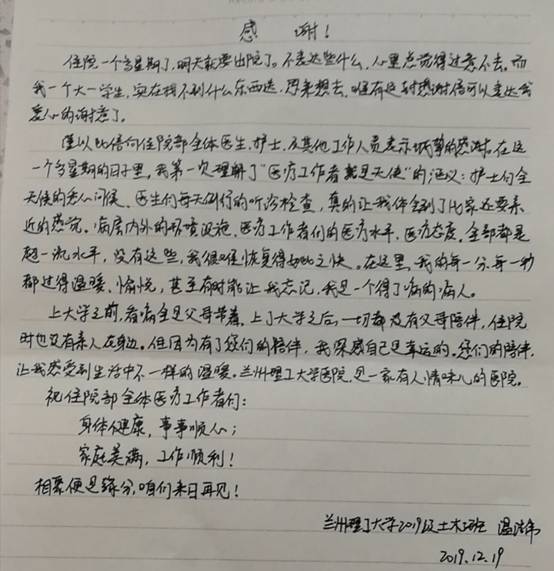 感 谢！
住院一个多星期了，明天就要出院了。不表达些什么，心里总觉得过意不去。而
我一个大一学生，实在找不到什么东西送，思来想去，唯有这封感谢信可以表达我
衷心的谢意了。
谨以此信向住院部全体医生，护士，及其他工作人员表示诚挚的感谢。在这
一个多星期的日子里，我第一次理解了“医疗工作者就是天使”的涵义：护士们全
天候的悉心问候、医生们每天例行的听诊检查，真的让我体会到了比家还要亲
近的感觉。病房内外的环境设施、医疗工作者们的医疗水平、医疗态度。全部都是
超一流水平，没有这些，我很难恢复得如此之快。在这里，我的每一分，每一秒
都过得温暖、愉悦，甚至有时能让我忘记，我是一个得了病的病人。
上大学之前，看病全是父母带着。上了大学之后，一切都没有父母陪伴，住院
时也没有亲人在身边。但因为有了您们的陪伴，我深感自己是幸运的。您们的陪伴，
让我感受到生活中不一样的温暖。兰州理工大学医院，是一家有人情味儿的医院。
祝住院部全体医疗工作者们：
身体健康，事事顺心；
家庭美满，工作顺利！
相聚便是缘分，咱们来日再见！
兰州理工大学2019级土木班 温
2019.12.19